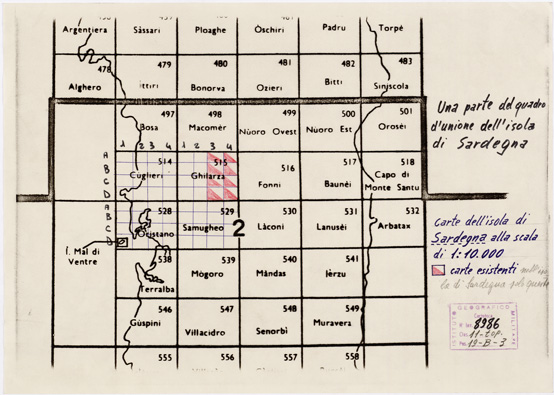 Argentiera Sàssari Ploaghe Òschiri Padru Torpé
478 479 480 481 482 483
Alghero Ittiri Bonorva Ozieri Bitti Siniscola
497 498 499 500 501
Bosa Macomér Nùoro Ovest Nùoro Est Oroséi
1 2 3 4 1 2 3 4
A B C D
514 515 516 517 518
Cuglieri Ghilarza Fonni Baunéi Capo di
Monte Santu
A B C D
528 529 530 531 532
Oristano Samugheo 2 Làconi Lanuséi Arbatax
Í. Mal di
Ventre
538 539 540 541
Terralba Mógoro Mándas Ièrzu
546 547 548 549
Gùspini Villacidro Senorbì Muravera
555 556 557 558
Una parte del quadro
d'unione dell'isola
di Sardegna
carte dell'isola di
Sardegna alla scala
di 1:10.000
carte esistenti
la di Sardegna
ISTITUTO GEOGRAFICO MILITARE
8986
19-B-3